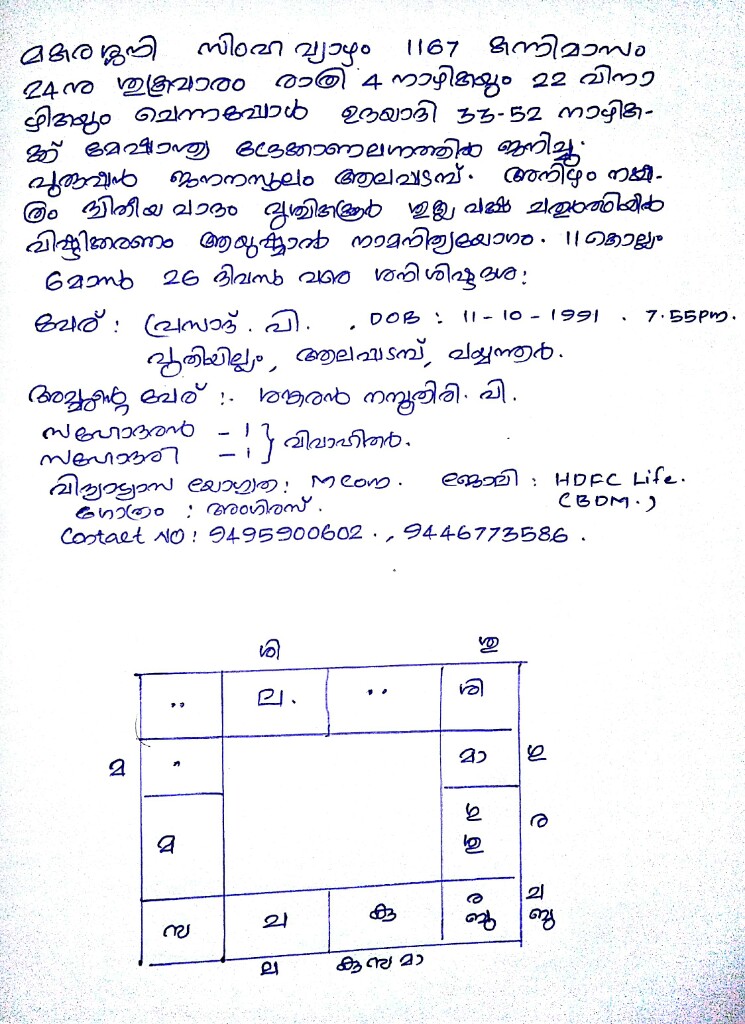 മകരശ്ശനി സിംഹ വ്യാഴം 1167 കന്നിമാസം
24നു ശുക്രവാരം രാത്രി 4 നാഴികയും 22 വിനാ
ഴികയും ചെന്നപ്പോൾ ഉദയാദി 33-52 നാഴിക-
ക്ക് മേഷാന്ത്യ ദ്രേക്കോണലഗ്നത്തിൽ ജനിച്ചു.
പുരുഷൻ ജനനസ്ഥലം ആലപ്പടമ്പ്. അനിഴം നക്ഷ-
ത്രം ദ്വിതീയ പാദം വൃശ്ചികക്കൂർ ശുക്ല പക്ഷ ചതുർത്ഥിയിൽ
വിഷ്ടിക്കരണം ആയുഷ്മാൻ നാമനിത്യയോഗം. 11കൊല്ലം
6മാസം 26 ദിവസം വരെ ശനിശിഷ്ടദശ:
പേര് : പ്രസാദ്. പി. . DOB : 11-10-1991 . 7.55pm.
പുതിയില്ലം, ആലപ്പടമ്പ്, പയ്യന്നൂർ.
അച്ഛന്റെ പേര് :. ശങ്കരൻ നമ്പൂതിരി. പി.
സഹോദരൻ – 1 } വിവാഹിതർ.
സഹോദരി – 1
വിദ്യാഭ്യാസ യോഗ്യത: M com. ജോലി : HDFC Life.
(BDM.)
ഗോത്രം : അംഗിരസ്.
Contact NO : 9495900602 . , 9446773586 .
ശി ശു
" ല. " ശി
മ " മാ ഗു
മ ഗു ശു ര
സ ച കു ര ബു ച ബു
ല കു സ മാ